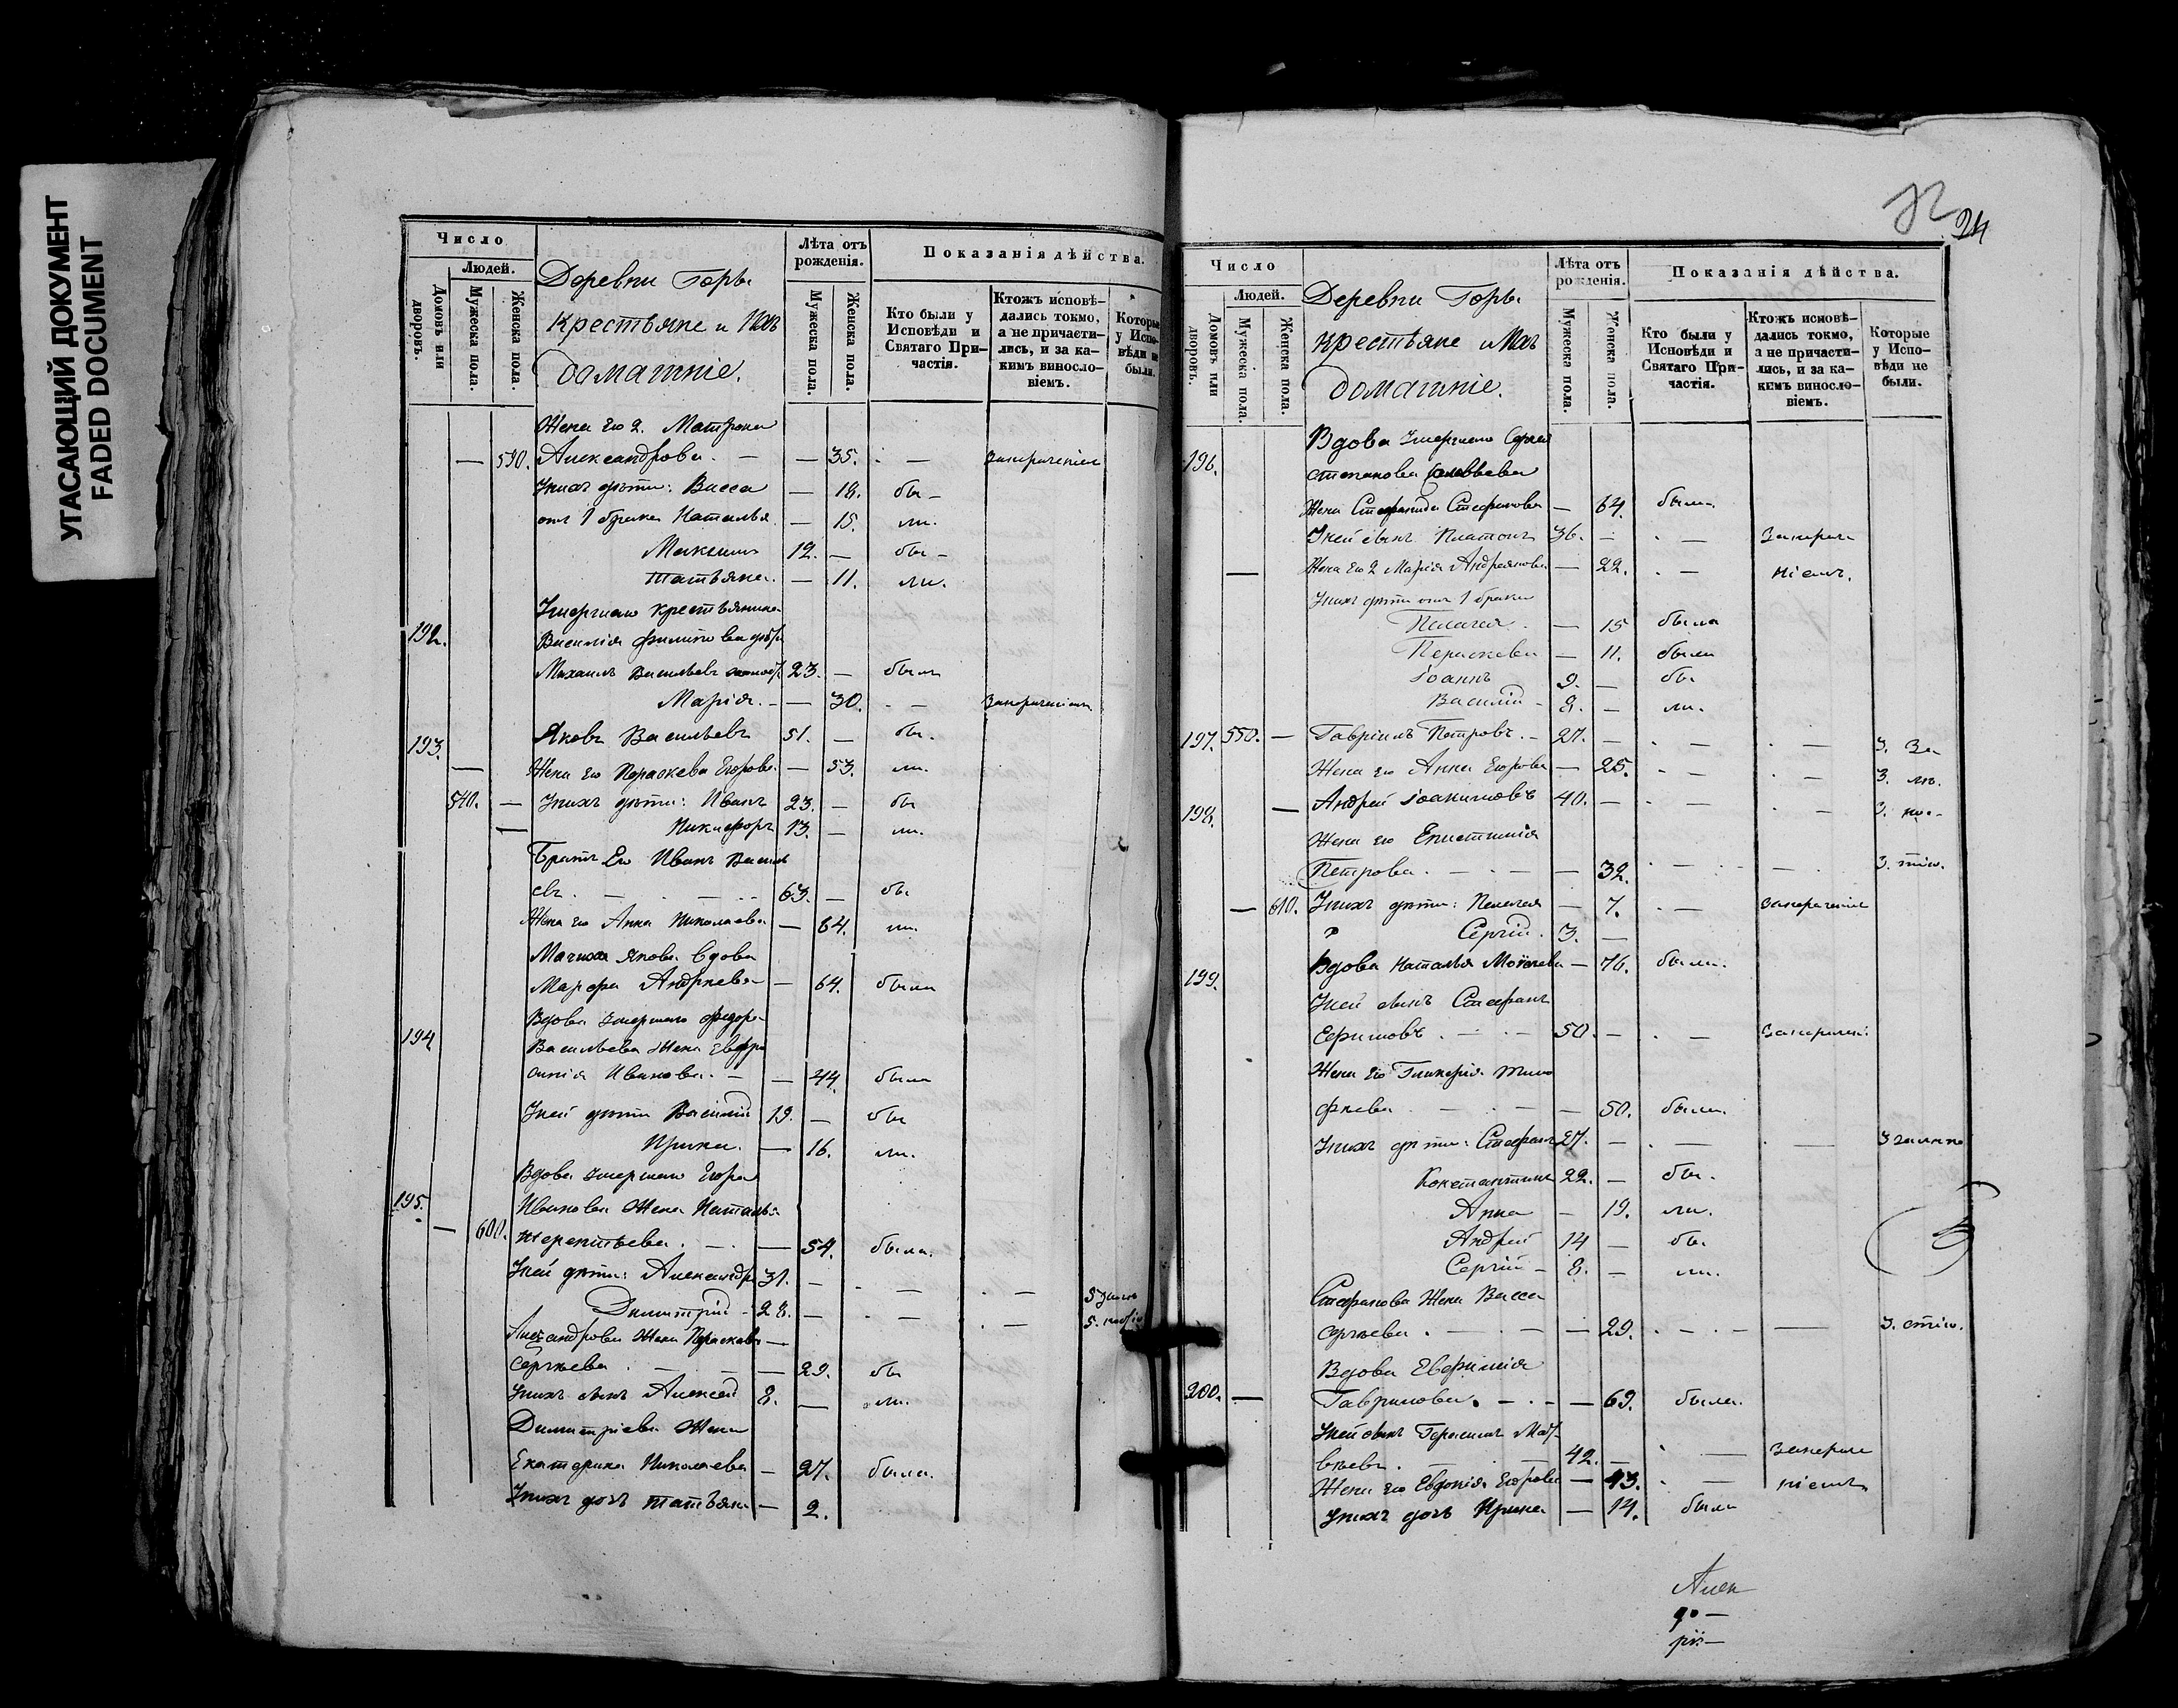 УГАСАЮЩИЙ ДОКУМЕНТ
FADED DOCUMENT
Число
Людей.
Домовъ или дворовъ.
Мужеска пола.
Женска пола.
Деревни Горы
крестьяне и ихъ
домашніе.
Лѣта отъ рожденія.
Мужеска пола.
Женска пола.
Показанія дѣйства.
Кто были у Исповѣди и Святаго При-частія.
Ктожъ исповѣ-дались токмо, а не причасти-лись, и за ка-кимъ винослo-віемъ.
Которые у Испо-вѣди не были.
Жена его 2. Матрона
— 590. Александрова. — — 35. — —
У нихъ дѣти: Васса — 18. бы-
отъ 1 брака Наталья — 15. ли.
Максимъ 12. — бы-
Татьяна. — 11. ли.
Умершаго крестьянина
192. Василія Филиппова дѣти
Михаилъ Васильевъ 23. — былъ
Марія. — — 30. — —
193. Яковъ Васильевъ 51. — бы.
— Жена его Параскева Егорова — 53. ли.
540. — У нихъ дѣти: Иванъ 23. — бы
— Никифоръ 13. — ли.
Братъ Его Иванъ Василь
евъ. — 63. — бы
Жена его Анна Николаева — 64. ли.
Мачиха Якова вдова
Марфа Андреева — 64. была
Вдова умершаго Федора
194 Васильева Жена Евфро
синія Иванова. — — 44. была
У ней дѣти Василій 19. — бы
Ирина. — 16. ли.
Вдова умершаго Егора
195. Иванова Жена Наталья
— 600. Терентьева. — — 54. была.
У ней дѣти: Александръ 31. — — —
Димитрій — 28. — — —
Александрова Жена Параскева —
Сергѣева. — — 29. бы
У нихъ сынъ Алексей 8. — ли.
Димитріева Жена
Екатерина Николаева — 27. была.
У нихъ дочь Татьяна — 2.
24
Число
Людей.
Домовъ или дворовъ.
Мужеска пола.
Женска пола.
Деревни Горы
крестьяне и ихъ
домашніе.
Лѣта отъ рожденія.
Мужеска пола.
Женска пола.
Показанія дѣйства.
Кто были у Исповѣди и Святаго При-частія.
Ктожъ исповѣ-дались токмо, а не причасти-лись, и за ка-кимъ винослo-віемъ.
Которые у Испо-вѣди не были.
196. Вдова умершаго Сергея
Степанова Соловьева
Жена Стефанида Стефанова — 64. была.
У ней сынъ Платонъ 36. — — —
— Жена его 2 Марія Андреянова — 22. — —
У нихъ дѣти отъ 1 брака
Пелагея. — 15 была
Параскева — 11. была
Іоаннъ 9. — бы
Василій — 8. — ли.
197. 550. — Гавріилъ Петровъ. — 27. — — — 3. За-
Жена его Анна Егорова — 25. — — 3.
198. — Андрей Іоакимовъ 40. — — — 3.
Жена его Епистимія
Петрова. — — 32. — — 3.
— 610. У нихъ дѣти: Пелагея — 7. —
Сергій. 3. —
199. Вдова Наталья — 76. была.
У ней сынъ Стефанъ
Ефимовъ. — 50. — —
Жена его Гликерія Тимо
феева — — 50. была.
У нихъ дѣти: Стефанъ 27. — — —
Константинъ 22. — бы.
Анна — 19. ли.
Андрей 14 — бы.
Сергій — 8. — ли.
Стефанова Жена Васса
Сергѣева. — — 29. — —
Вдова Евфимія
200. — Гаврилова. — — 69. была.
У ней сынъ Герасимъ Мат-
вѣевъ. — 42. — —
Жена его Евдокія Егорова — 43. —
У нихъ дочь Ирина — 14. была
Алек
до —
рій —